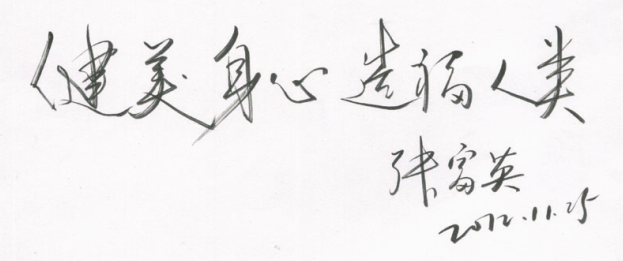 健美身心 造福人类
张富英
2012.11.25